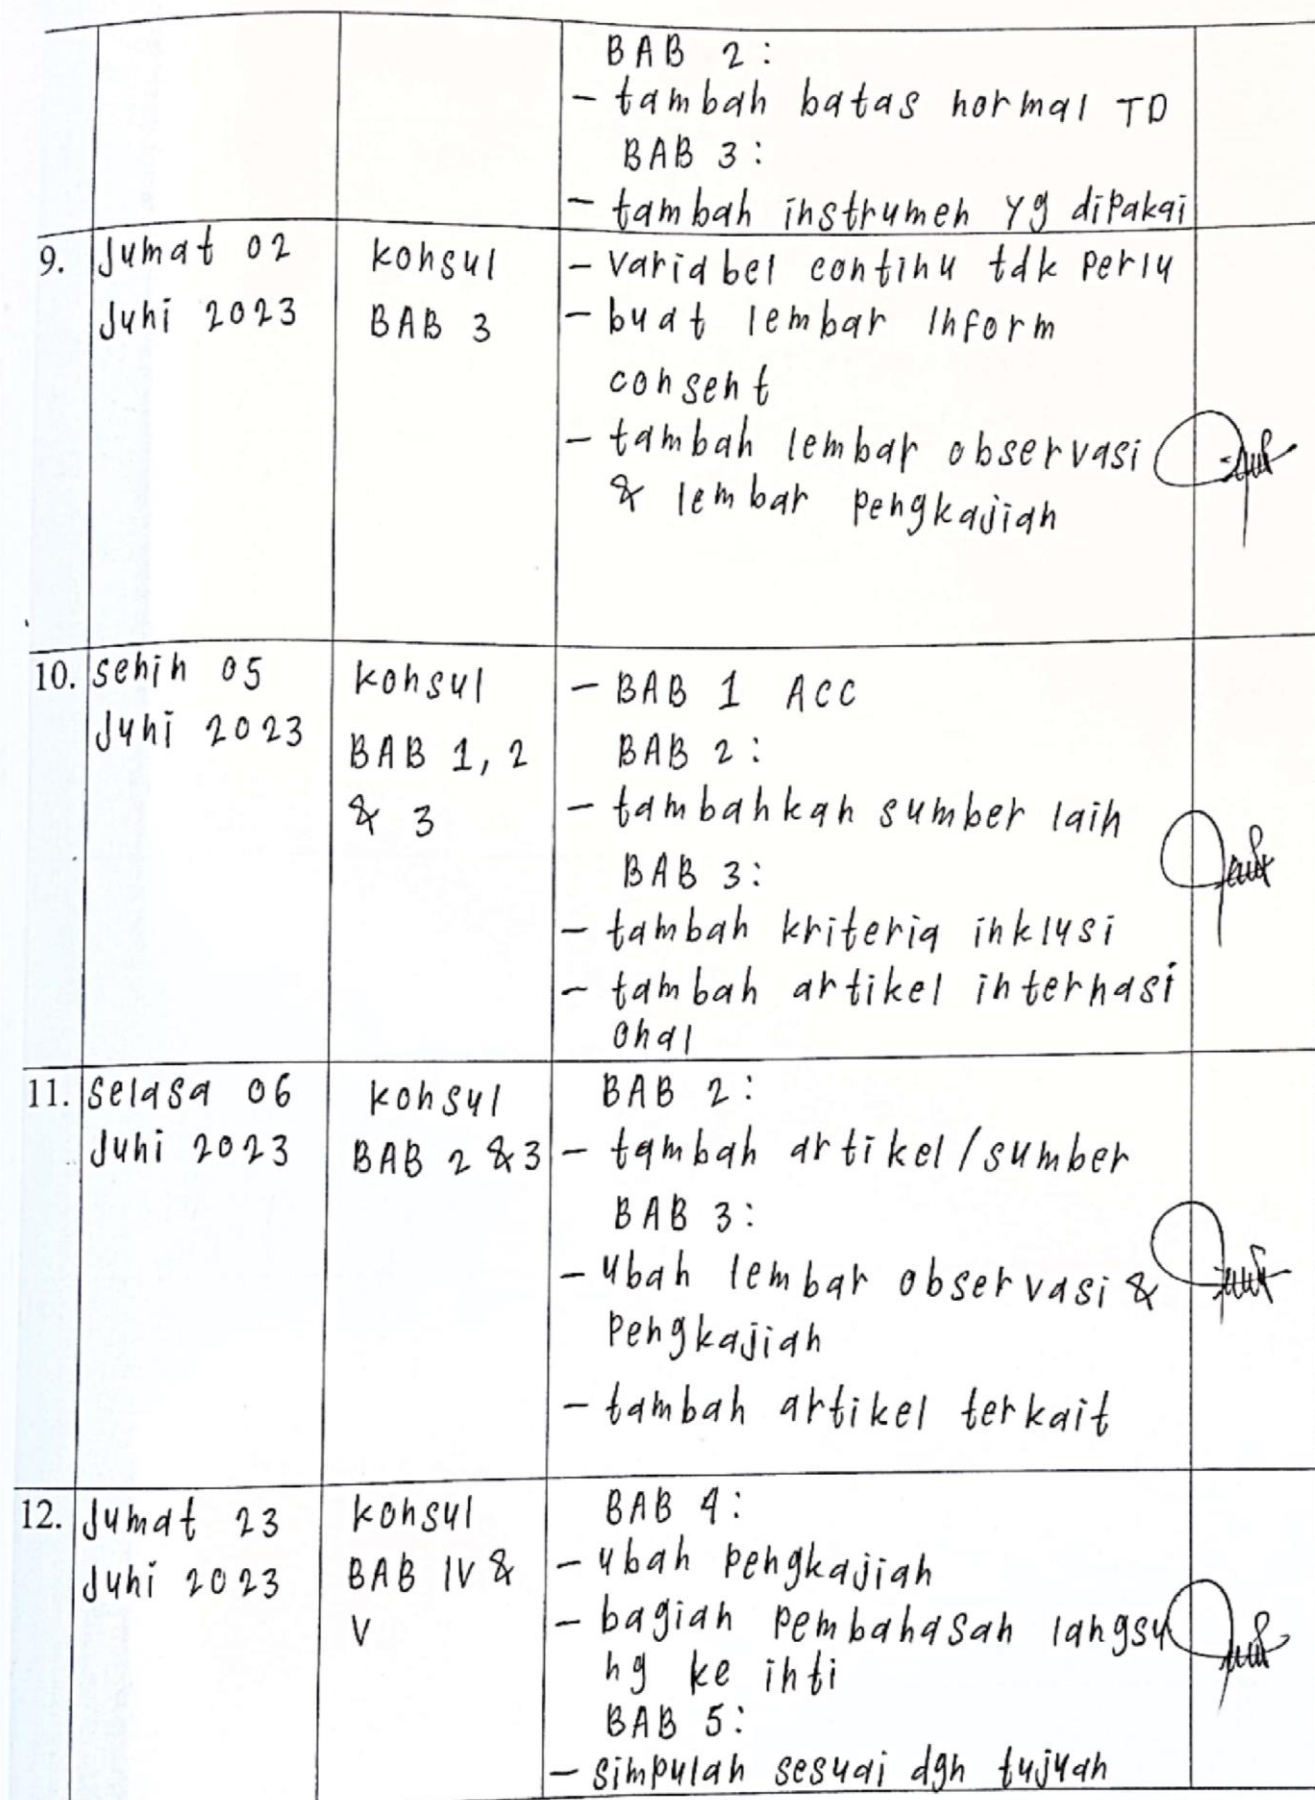 BAB 2 :
- tambah batas normal TD
BAB 3 :
- tambah instrumen yg dipakai
9. Jumat 02
Juni 2023
konsul
BAB 3
- variabel continu tdk perlu
- buat lembar inform
consent
- tambah lembar observasi
& lembar pengkajian
10. senin 05
Juni 2023
konsul
BAB 1, 2
& 3
- BAB 1 ACC
BAB 2 :
- tambahkan sumber lain
BAB 3 :
- tambah kriteria inklusi
- tambah artikel internasi
onal
11. selasa 06
Juni 2023
konsul
BAB 2 & 3
BAB 2 :
- tambah artikel/sumber
BAB 3 :
- ubah lembar observasi &
pengkajian
- tambah artikel terkait
12. Jumat 23
Juni 2023
konsul
BAB IV &
V
BAB 4 :
- ubah pengkajian
- bagian pembahasan langsu
ng ke inti
BAB 5 :
- simpulan sesuai dgn tujuan